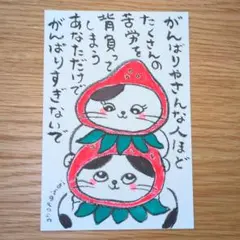 がんばりやさんな人ほど
たくさんの
苦労を
背負って
しまう
あなただけで
がんばりすぎないで